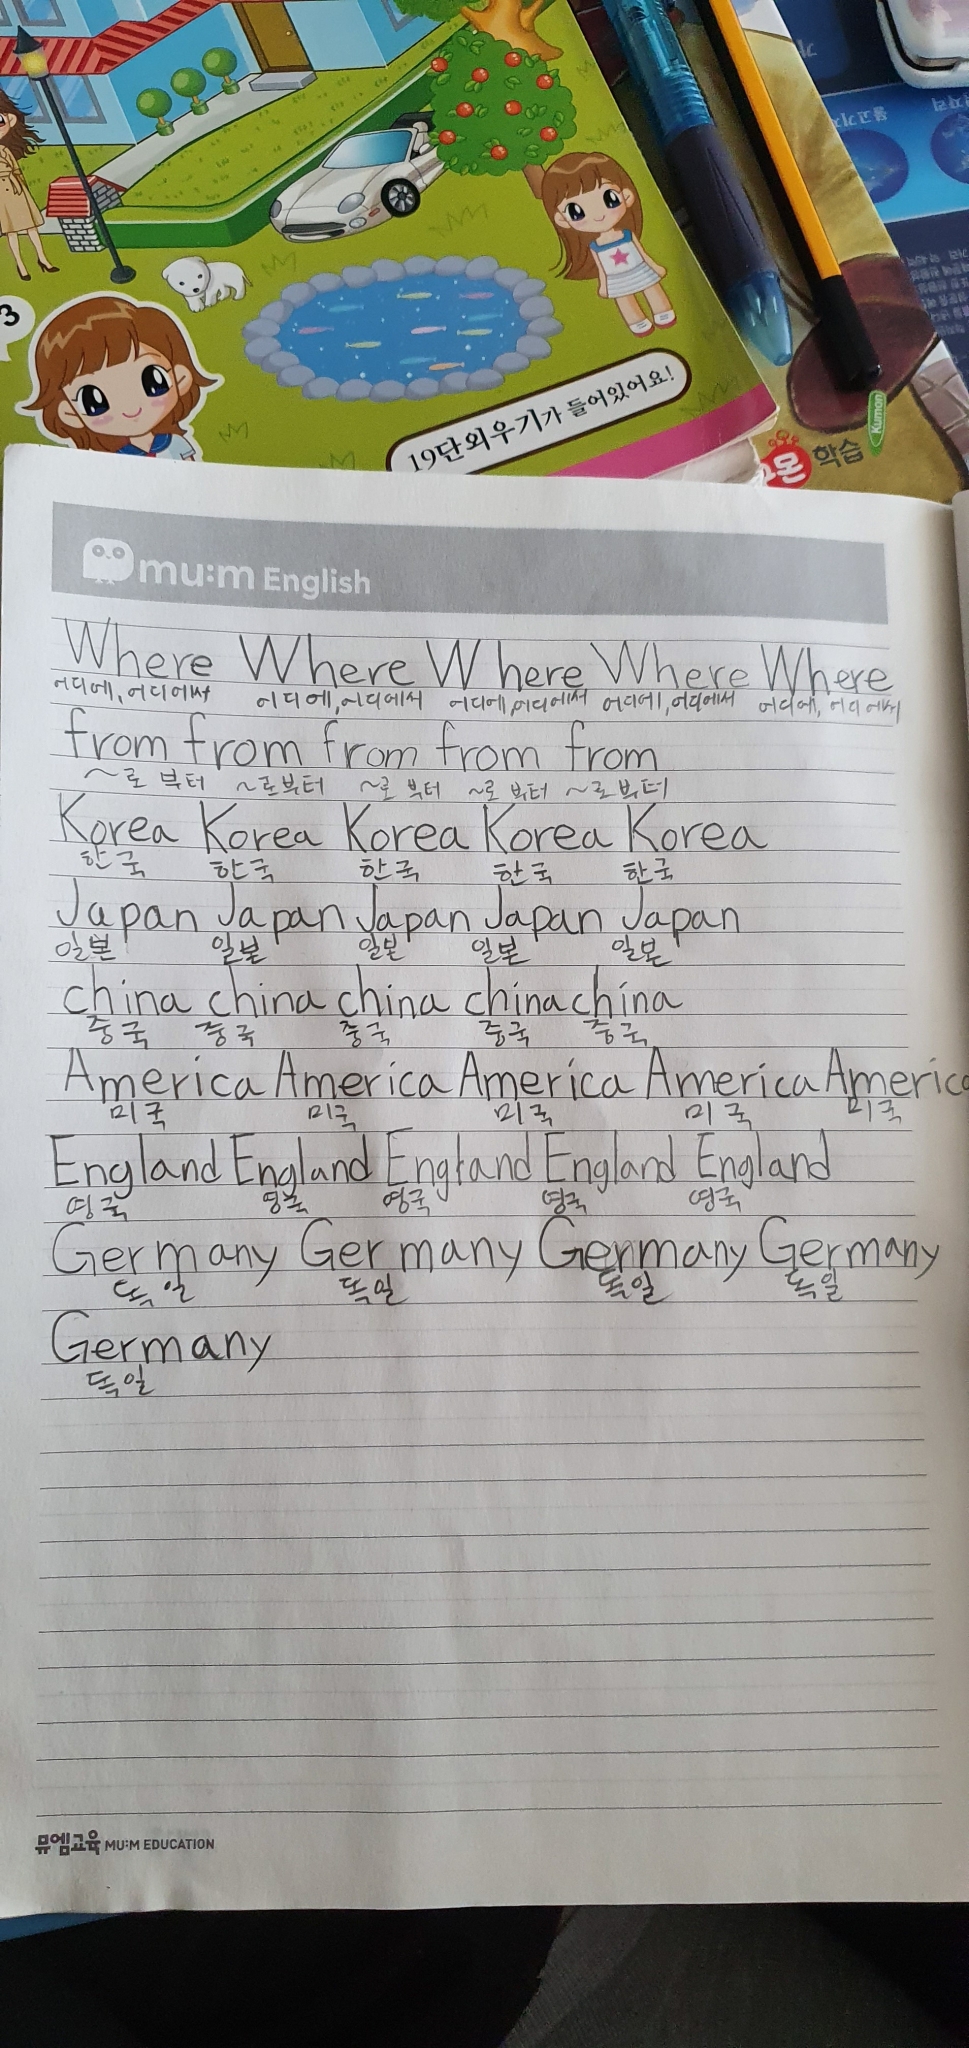 3
19단외우기가 들어있어요!
몬 학습
Kumon
mu:m English
Where Where Where Where Where
어디에, 어디에서 어디에, 어디에서 어디에, 어디에서 어디에, 어디에서 어디에, 어디에서
from from from from from
~로 부터 ~로부터 ~로 부터 ~로 부터 ~로부터
Korea Korea Korea Korea Korea
한국 한국 한국 한국 한국
Japan Japan Japan Japan Japan
일본 일본 일본 일본 일본
china china china china china
중국 중국 중국 중국 중국
America America America America America
미국 미국 미국 미국 미국
England England England England England
영국 영국 영국 영국 영국
Germany Germany Germany Germany
독일 독일 독일 독일
Germany
독일
뮤엠교육 MU:M EDUCATION